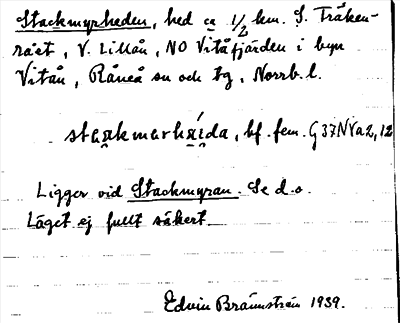 Stackmyrheden, hed ca 1/2 km. S. Träken-
räet, V. Lillån, NO Vitåfjärden i byn
Vitån, Råneå sn och tg, Norrb. l.
stakmarhaida, bf. fem. G37NVa2,12
Ligger vid Stackmyran. Se d.o.
Läget ej fullt säkert.
Edvin Brännström 1939.